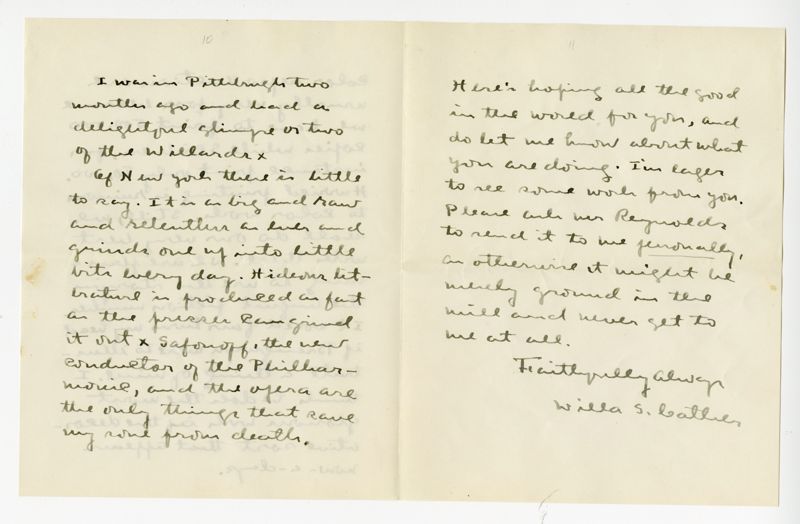 10
I was in Pittsburgh two
months ago and had a
delightful glimpse or two
of the Willards x
Of New York there is little
to say. It is as big and raw
and relentless as ever and
grinds one up into little
bits every day. Hideous lit-
erature is produced as fast
as the presses can grind
it out x Safonoff, the new
conductor of the Philhar-
monic, and the opera are
the only things that save
my soul from death.
11
Here's hoping all the good
in the world for you, and
do let me know about what
you are doing. I'm eager
to see some work from you.
Please ask Mr Reynolds
to send it to me personally,
as otherwise it might be
merely ground in the
mill and never get to
me at all.
Faithfully always
Willa S. Cather